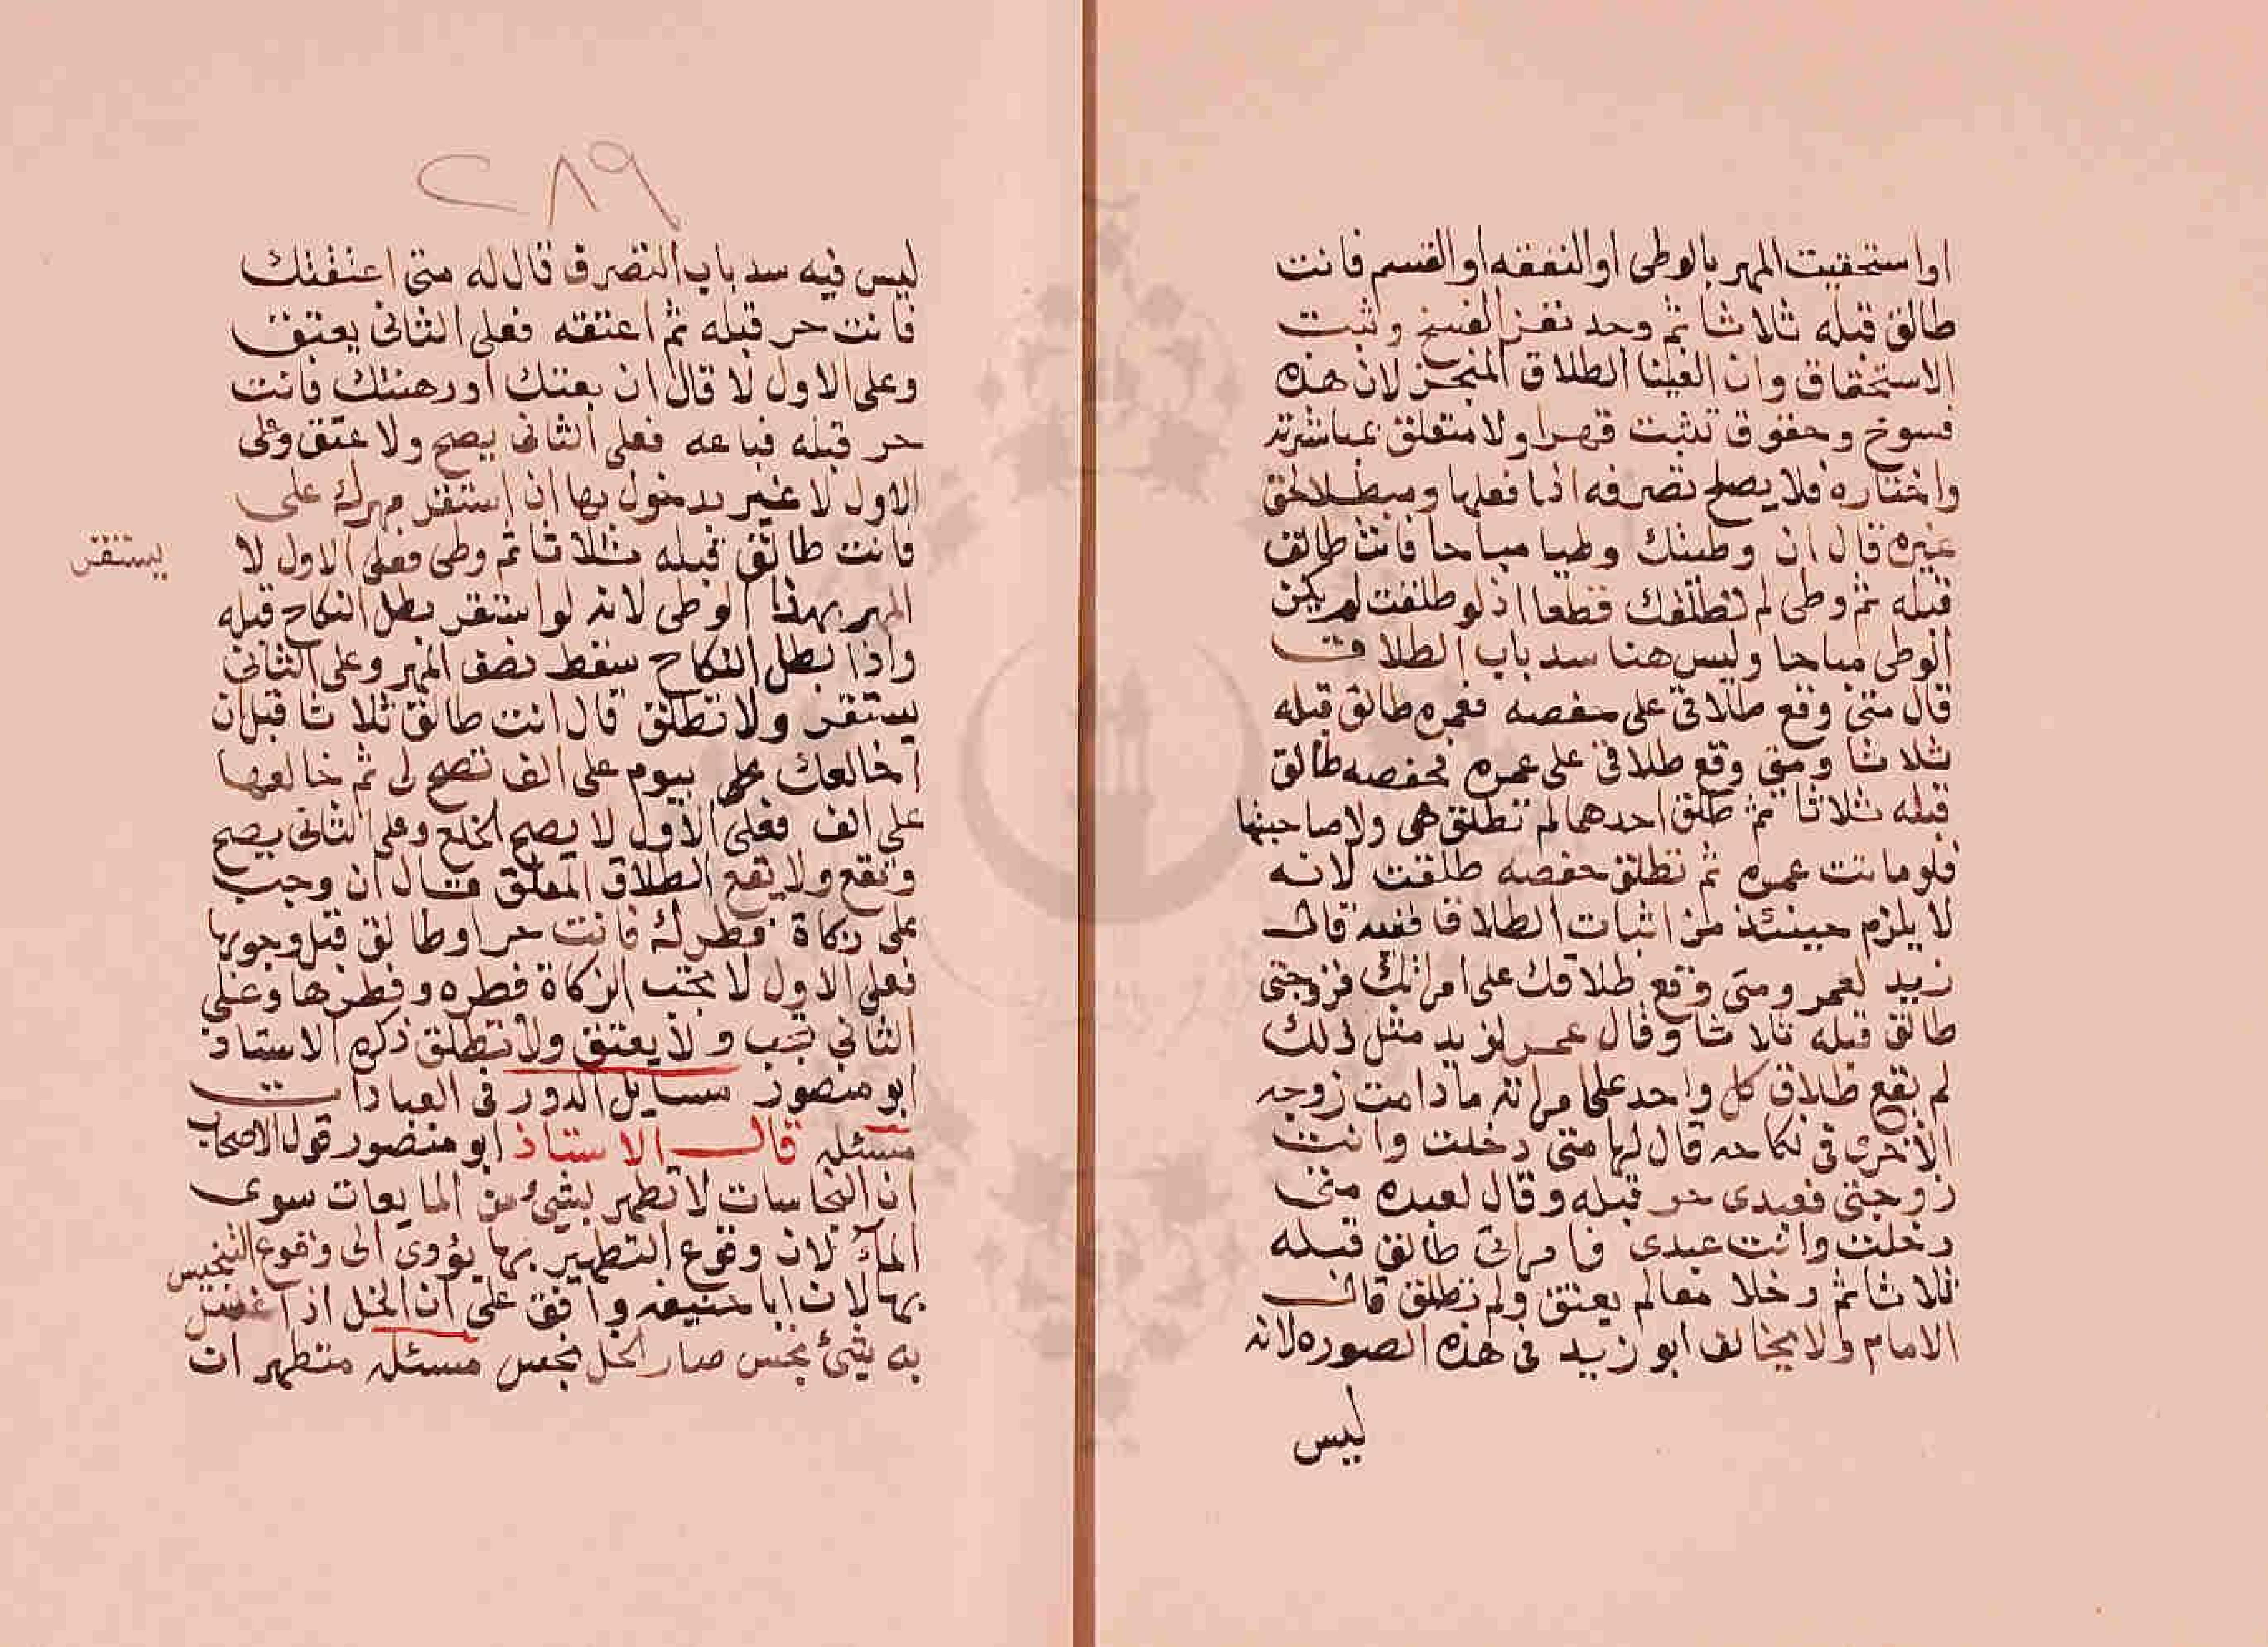 او استحقيت المهر بالوطى او النفقه او القسم فانت
طالق قبله ثلاثا ثم وجد نفذ الفسخ وثبت
الاستحقاق وان الغينا الطلاق المنجز لان هذه
فسوخ وحقوق تثبت قهرا ولا متعلق بمباشرته
واختاره فلا يصلح تصرفه اذا فعلها ومبطلا لحق
غيره قال ان وطيتك وطيا مباحا فانت طالق
قبله ثم وطى لم تطلق قطعا اذ لو طلقت لم يكن
الوطى مباحا وليس هنا سد باب الطلاق
قال متى وقع طلاقى على حفصه فعمره طالق قبله
ثلاثا ومتى وقع طلاقى على عمره فحفصه طالق
قبله ثلاثا ثم طلق احدهما لم تطلق هى ولا صاحبتها
فلو ماتت عمره ثم تطلق حفصه طلقت لانه
لا يلزم حينئذ من اثبات الطلاق نفيه قال
زيد لعمر ومتى وقع طلاقك على امراتك فزوجتى
طالق قبله ثلاثا وقال عمر لزيد مثل ذلك
لم يقع طلاق كل واحد على امراته ما دامت زوجه
الاخرى فى نكاحه قال لها متى دخلت وانت
زوجتى فعبدى حر قبله وقال لعبده متى
دخلت وانت عبدى فامراتى طالق قبله
ثلاثا ثم دخلا معا لم يعتق ولم تطلق قال
الامام ولا يخالف ابو زيد فى هذه الصوره لانه
ليس
٢٨٩
ليس فيه سد باب التصرف قال له متى اعتقتك
فانت حر قبله ثم اعتقه فعلى الثانى يعتق
وعلى الاول لا قال ان بعتك او رهنتك فانت
حر قبله فباعه فعلى الثانى يصح ولا عتق وعلى
الاول لا غير مدخول بها ان استقر مهرك على
فانت طالق قبله ثلاثا ثم وطى فعلى الاول لا
يستقر
المهر بهذا الوطى لانه لو استقر بطل النكاح قبله
واذا بطل النكاح سقط نصف المهر وعلى الثانى
يستقر ولا تطلق قال انت طالق ثلاثا قبل ان
اخالعك بيوم على الف تصح لى ثم خالعها
على الف فعلى الاول لا يصح الخلع وعلى الثانى يصح
وتقع ولا يقع الطلاق المعلق قال ان وجب
على زكاة فطرك فانت حر او طالق قبل وجوبها
فعلى الاول لا يجب الزكاة فطره وفطرها وعلى
الثانى تجب ولا يعتق ولا تطلق ذكره الاستاذ
ابو منصور مسايل الدور فى العبادات
مسئله قال الاستاذ ابو منصور قول الاصحاب
ان النجاسات لا تطهر بشىء من المايعات سوى
الماء لان وقوع التطهير بها يؤدى الى وقوع التنجيس
بها لان ابا حنيفه وافق على ان الخل اذا غسل
به شىء نجس صار الخل نجس مسئله متطهر ان